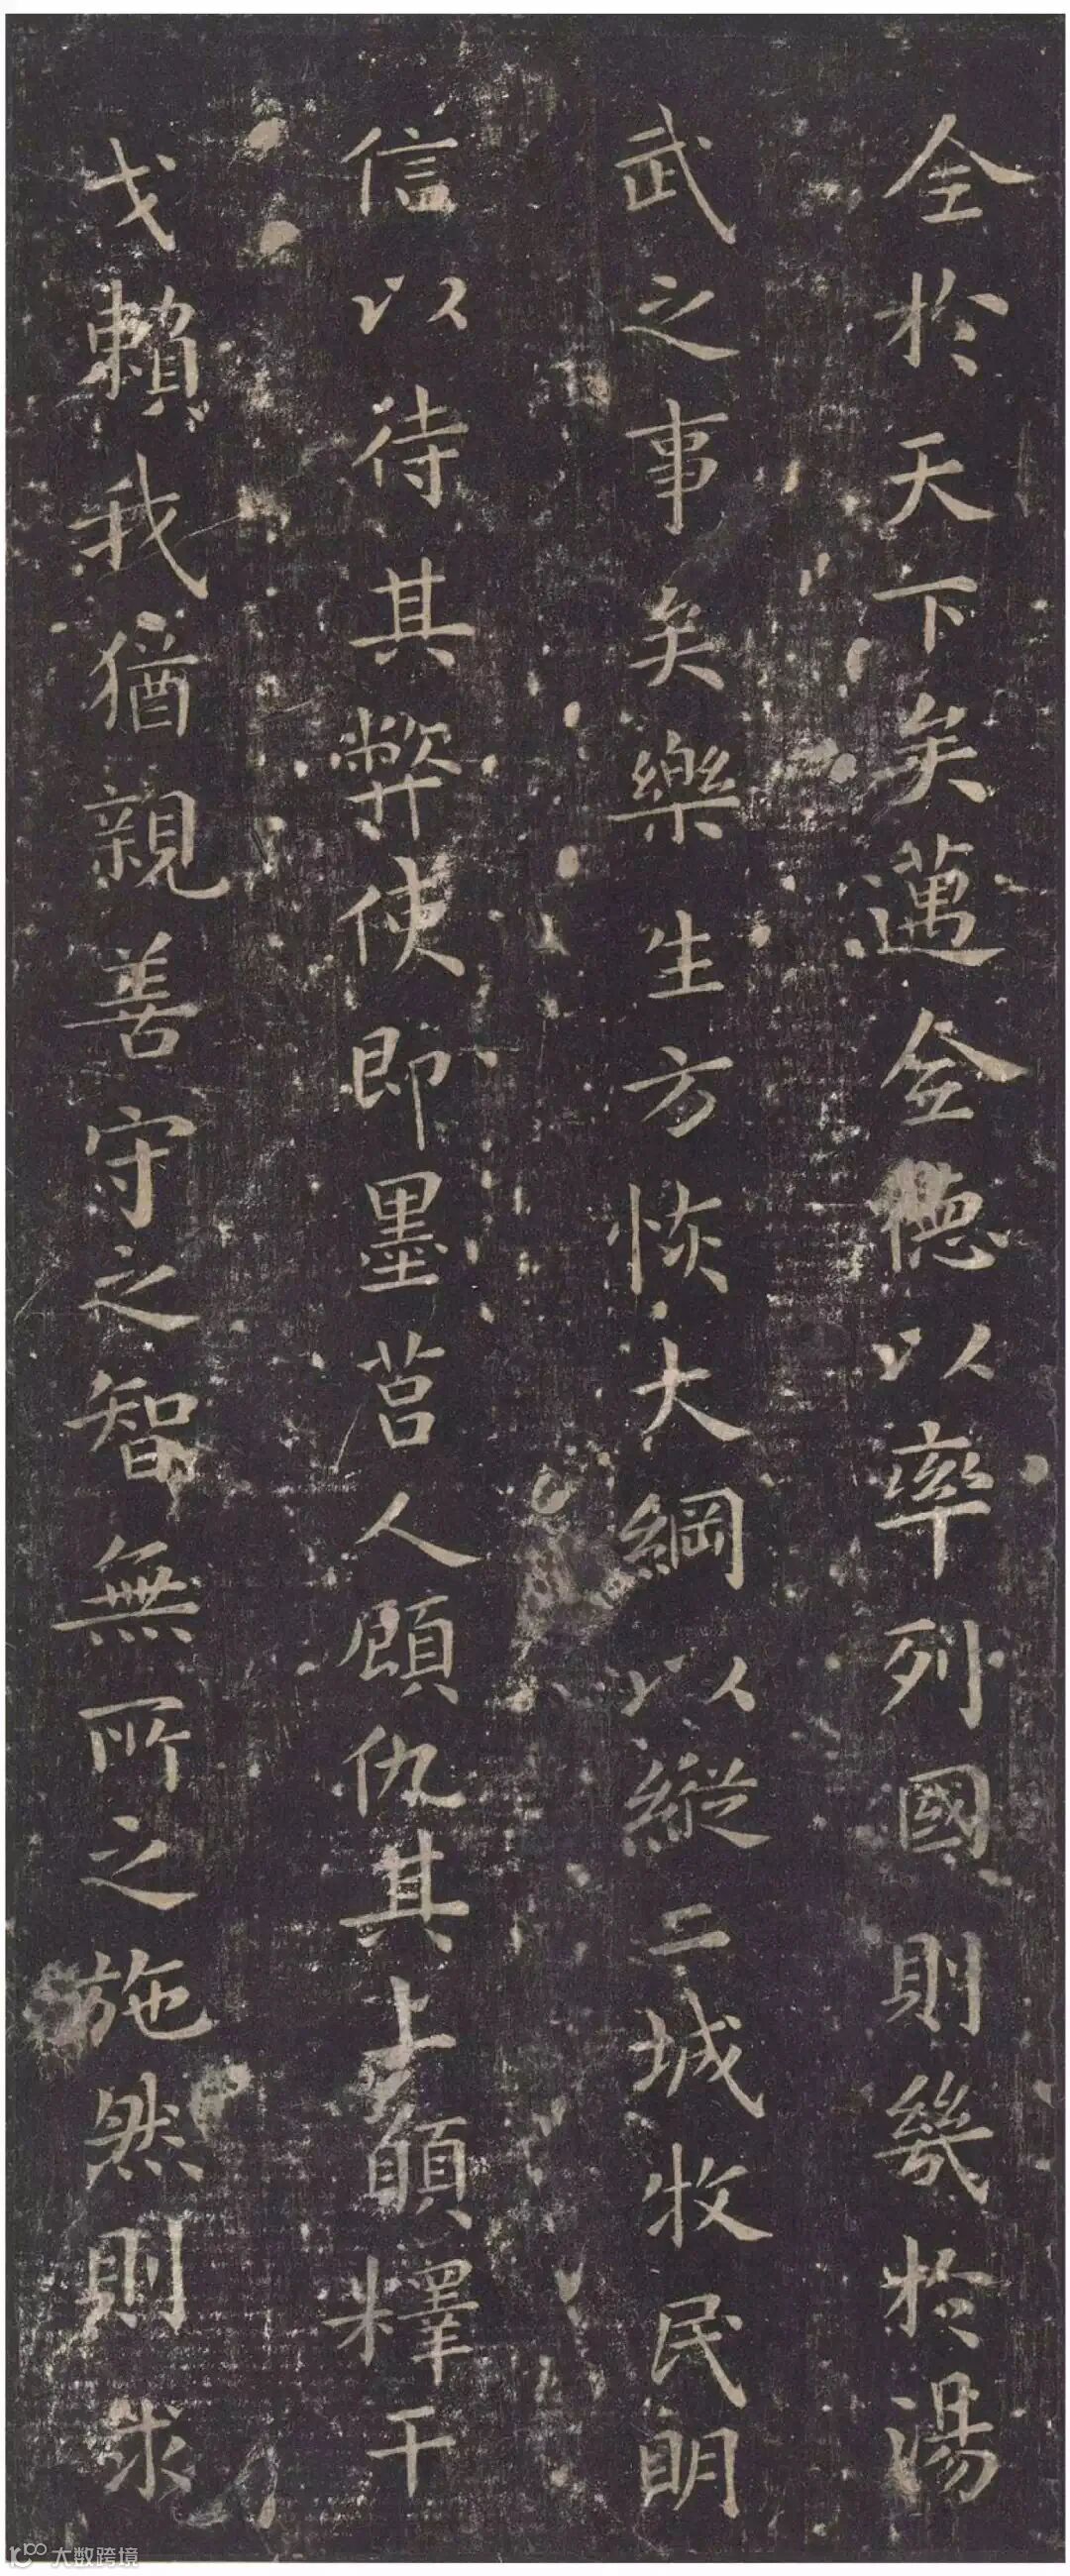 全於天下矣邁全德以率列國則幾於湯
武之事矣樂生方恢大綱以縱二城牧民明
信以待其弊使即墨莒人顧仇其上願釋干
戈賴我猶親善守之智無所之施然則求
大数跨境